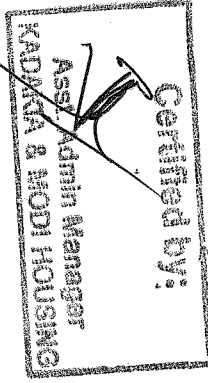 Certified by:
Asst. Admin Manager
KADAKIA & MODI HOUSING